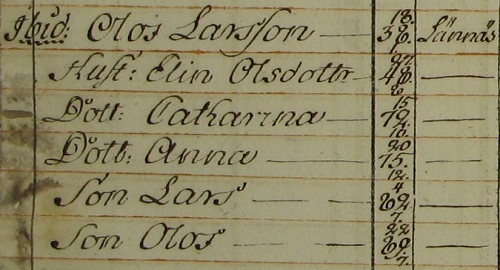 Ibid: Olof Larsson 18. 38. Lännäs
Hust: Elin Olsdottr 48.
Dott: Catharina 15 79
Dott: Anna 20 75.
Son Lars 4 82
Son Olof 22 89